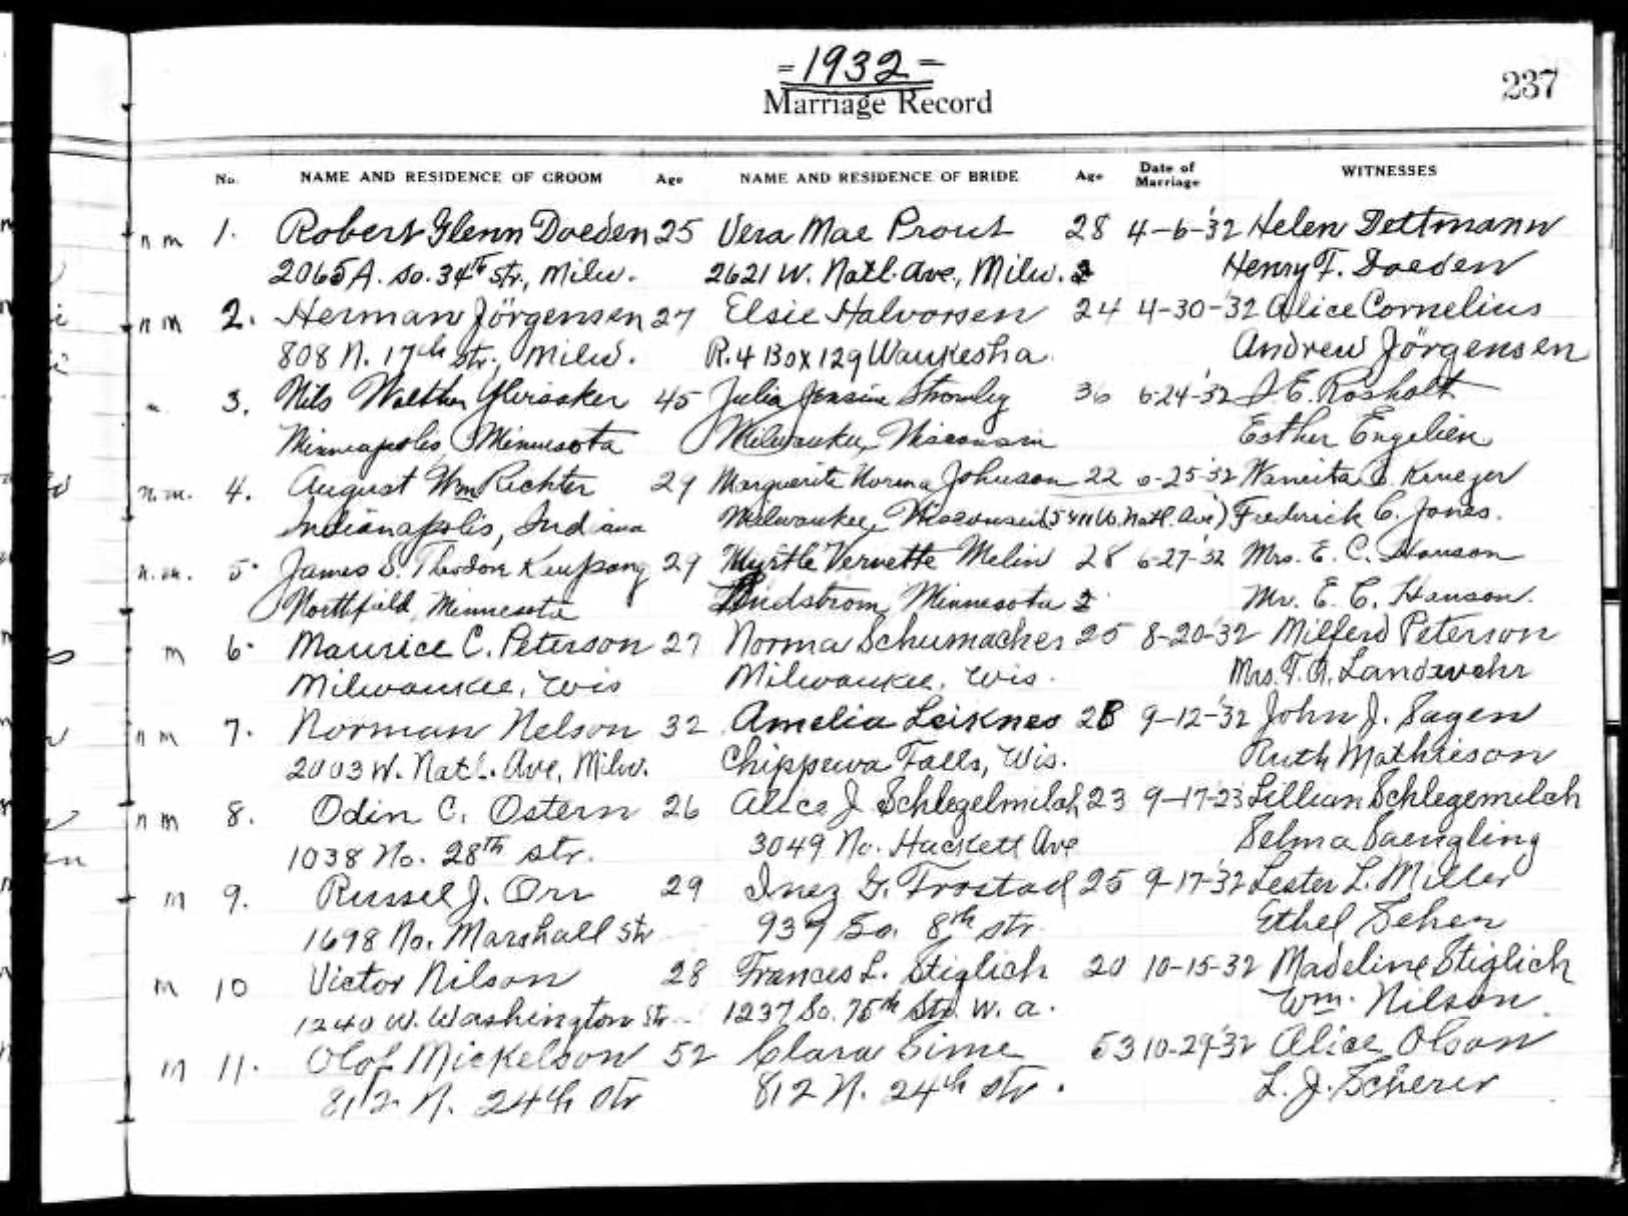 =1932=
Marriage Record
237
No. NAME AND RESIDENCE OF GROOM Age NAME AND RESIDENCE OF BRIDE Age Date of Marriage WITNESSES
n m 1. Robert Glenn Doeden 25 Vera Mae Prout 28 4-6-'32 Helen Dettmann
2065A. So. 34th Str., Milw. 2621 W. Natl. Ave., Milw. Henry F. Doeden
n m 2. Herman Jörgensen 27 Elsie Halvorsen 24 4-30-'32 Alice Cornelius
808 N. 17th Str., Milw. R. 4 Box 129 Waukesha Andrew Jörgensen
3. Nils Walther Ylvisaker 45 Julia Jensine Stromley 36 6-24-'32 E. Rosholt
Minneapolis, Minnesota Milwaukee, Wisconsin Esther Engelien
n.m. 4. August Wm Richter 29 Marguerite Norma Johnson 22 6-25-'32 Krueger
Indianapolis, Indiana Milwaukee, Wisconsin (5411 W. Natl. Ave) Frederick C. Jones.
n.m. 5. James S. Theodore 29 Myrtle Vernette Melin 28 6-27-'32 Mrs. E. C. Hanson
Northfield, Minnesota Lindstrom, Minnesota 2 Mr. E. C. Hanson.
m 6. Maurice C. Peterson 27 Norma Schumacher 25 8-20-'32 Milferd Peterson
Milwaukee, Wis Milwaukee, Wis. Mrs. F. A. Landwehr
n m 7. Norman Nelson 32 Amelia Leiknes 28 9-12-'32 John J. Sagen
2003 W. Natl. Ave, Milw. Chippewa Falls, Wis. Ruth Mathieson
n m 8. Odin C. Ostern 26 Alice J. Schlegelmilch 23 9-17-23 Lillian Schlegemilch
1038 No. 28th Str. 3049 No. Hackett Ave Selma Saengling
m 9. Russel J. Orr 29 Inez G. Trostad 25 9-17-'32 Lester L. Miller
1698 No. Marshall Str 939 So. 8th Str. Ethel Seher
m 10 Victor Nilson 28 Frances L. Stiglich 20 10-15-32 Madeline Stiglich
1240 W. Washington Str. 1237 So. 75th Str. W. A. Wm. Nilson.
m 11. Olof Mickelson 52 Clara Sime 53 10-29-'32 Alice Olson
812 N. 24th Str 812 N. 24th Str. L. J. Scherer